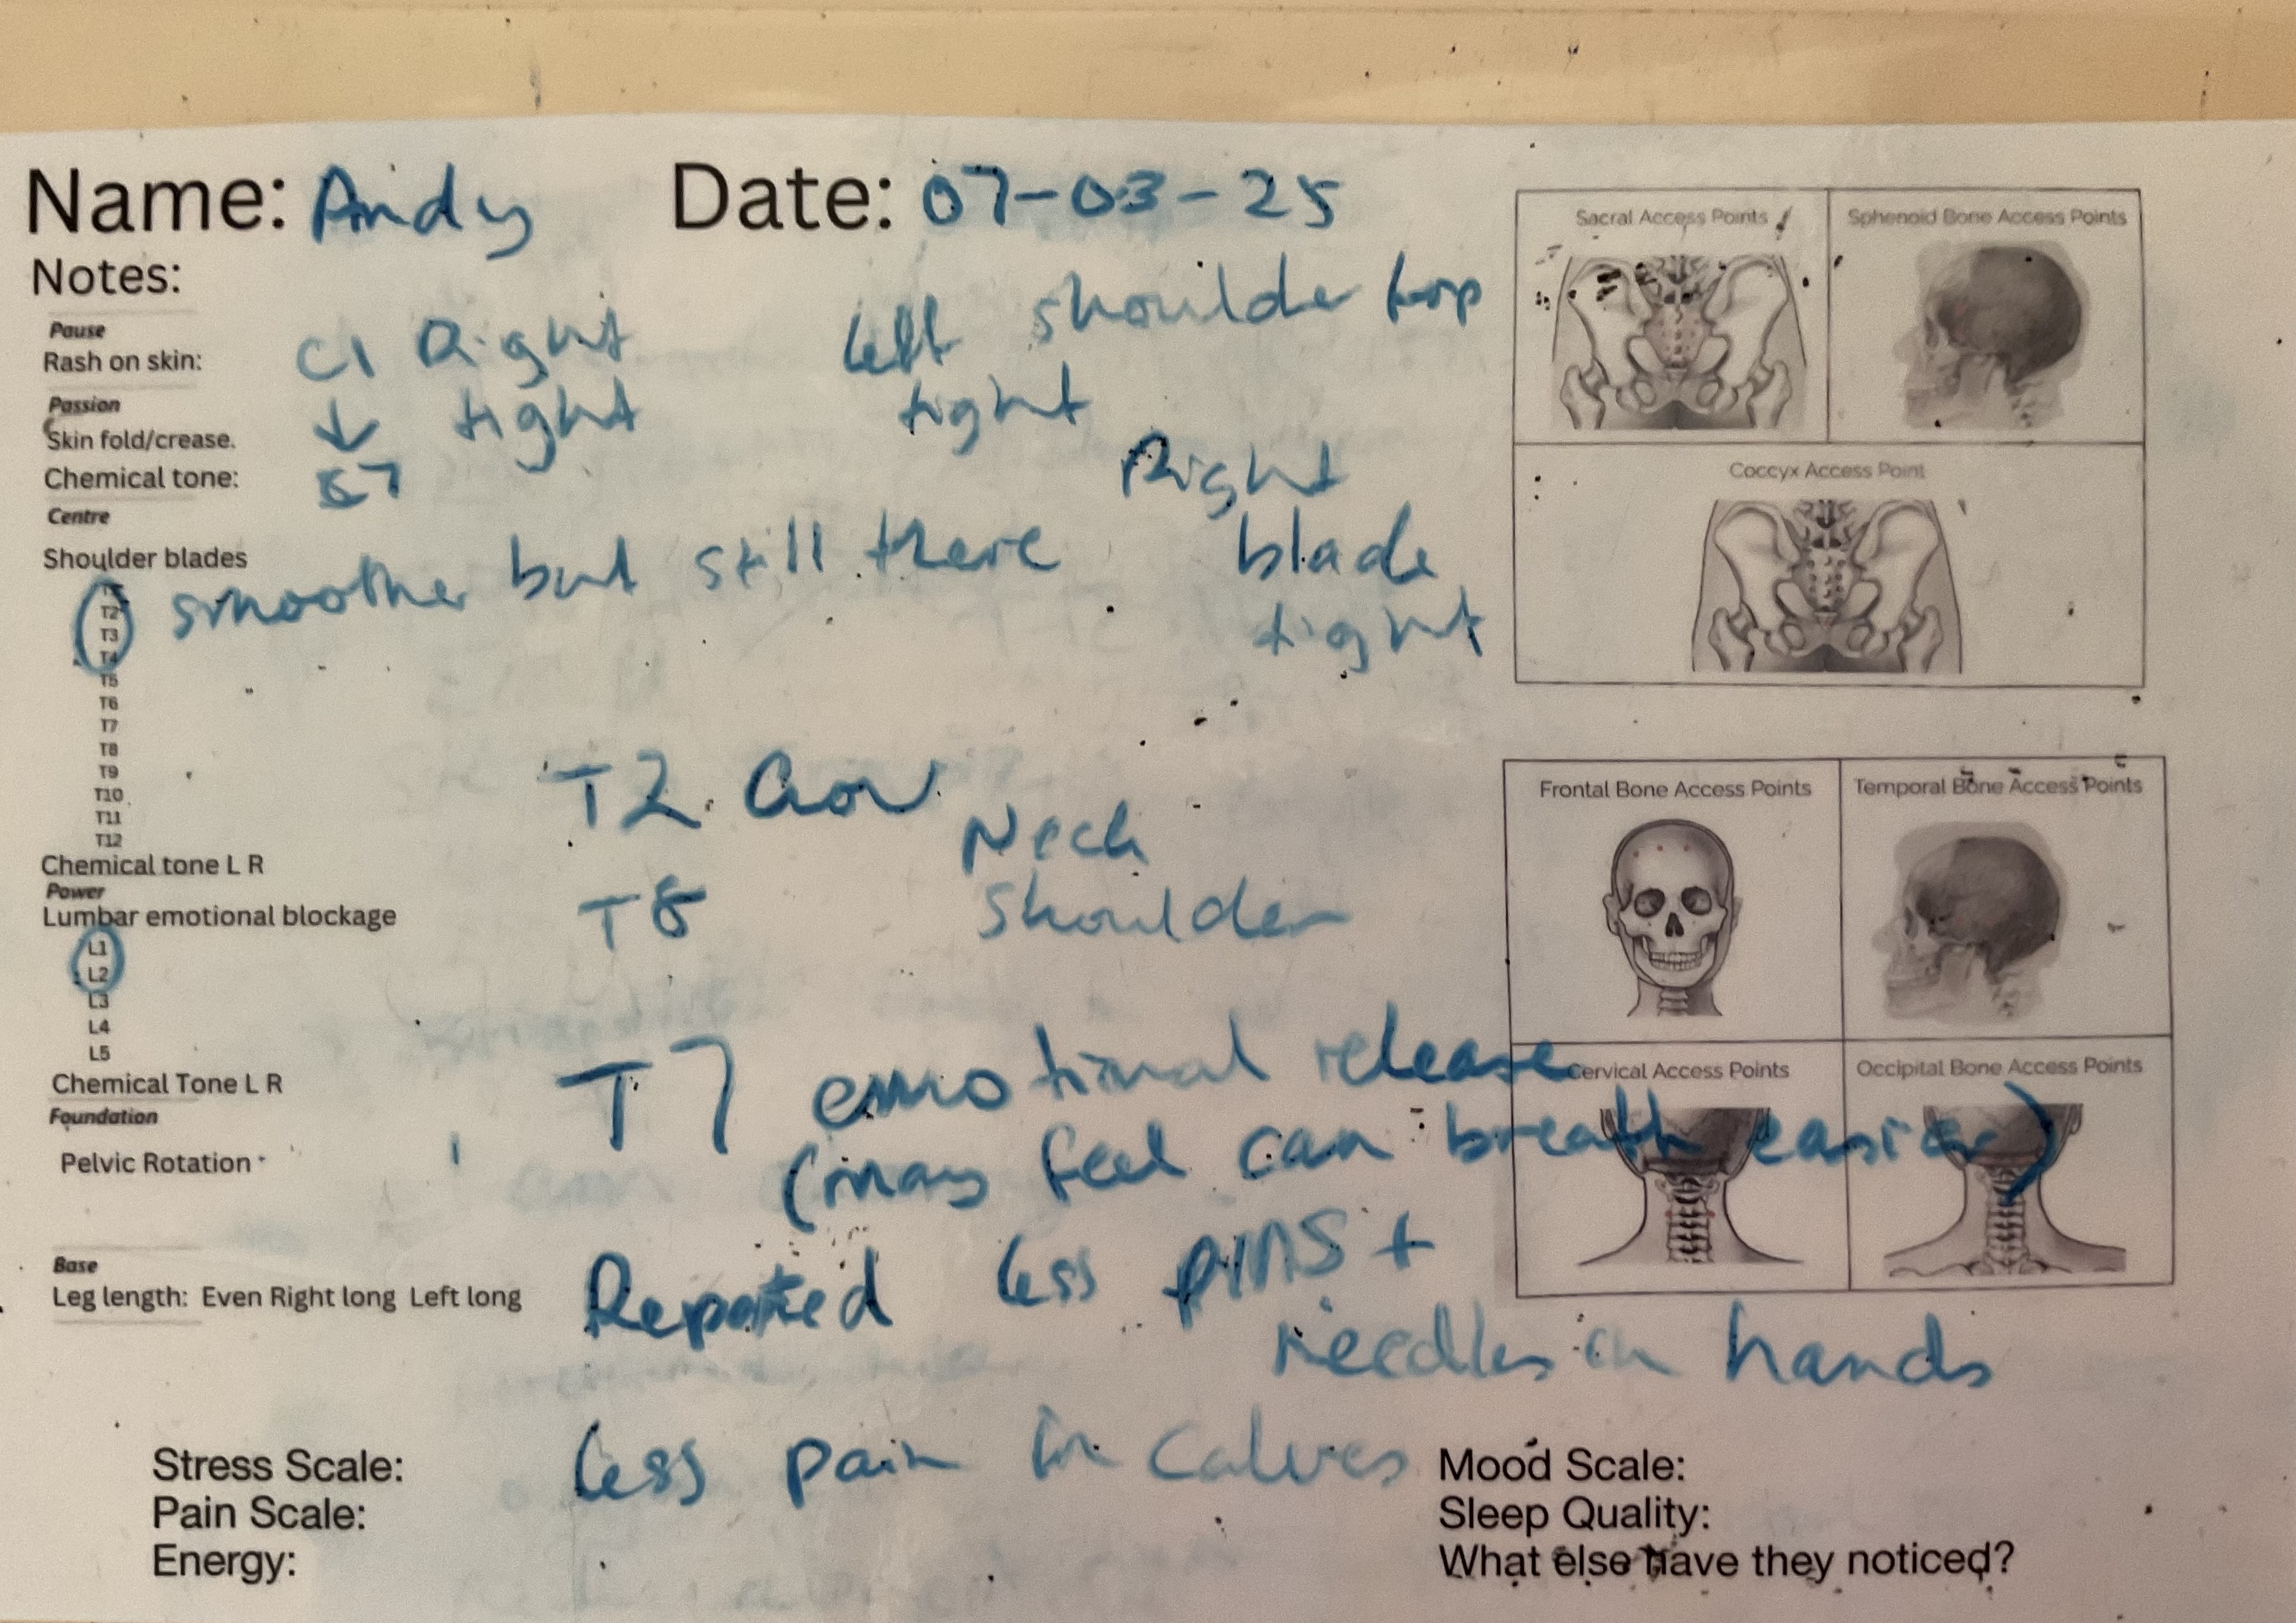 Name: Andy Date: 07-03-25
Notes:
Pause
Rash on skin: C1 Right left shoulder top
Passion
Skin fold/crease. ↓ tight tight
Chemical tone: Right
Centre
Shoulder blades blade
smoother but still there tight
T2
T3
T4
T5
T6
T7
T8
T9
T10
T11
T12
T2 Neck
T8 Shoulder
Chemical tone L R
Power
Lumbar emotional blockage
L1
L2
L3
L4
L5
Chemical Tone L R
Foundation
Pelvic Rotation
T7 emotional release
(may feel can breath easier)
Base
Leg length: Even Right long Left long
Reported less pins +
needles in hands
less pain in calves
Stress Scale:
Pain Scale:
Energy:
Mood Scale:
Sleep Quality:
What else have they noticed?
Sacral Access Points
Sphenoid Bone Access Points
Coccyx Access Point
Frontal Bone Access Points
Temporal Bone Access Points
Cervical Access Points
Occipital Bone Access Points